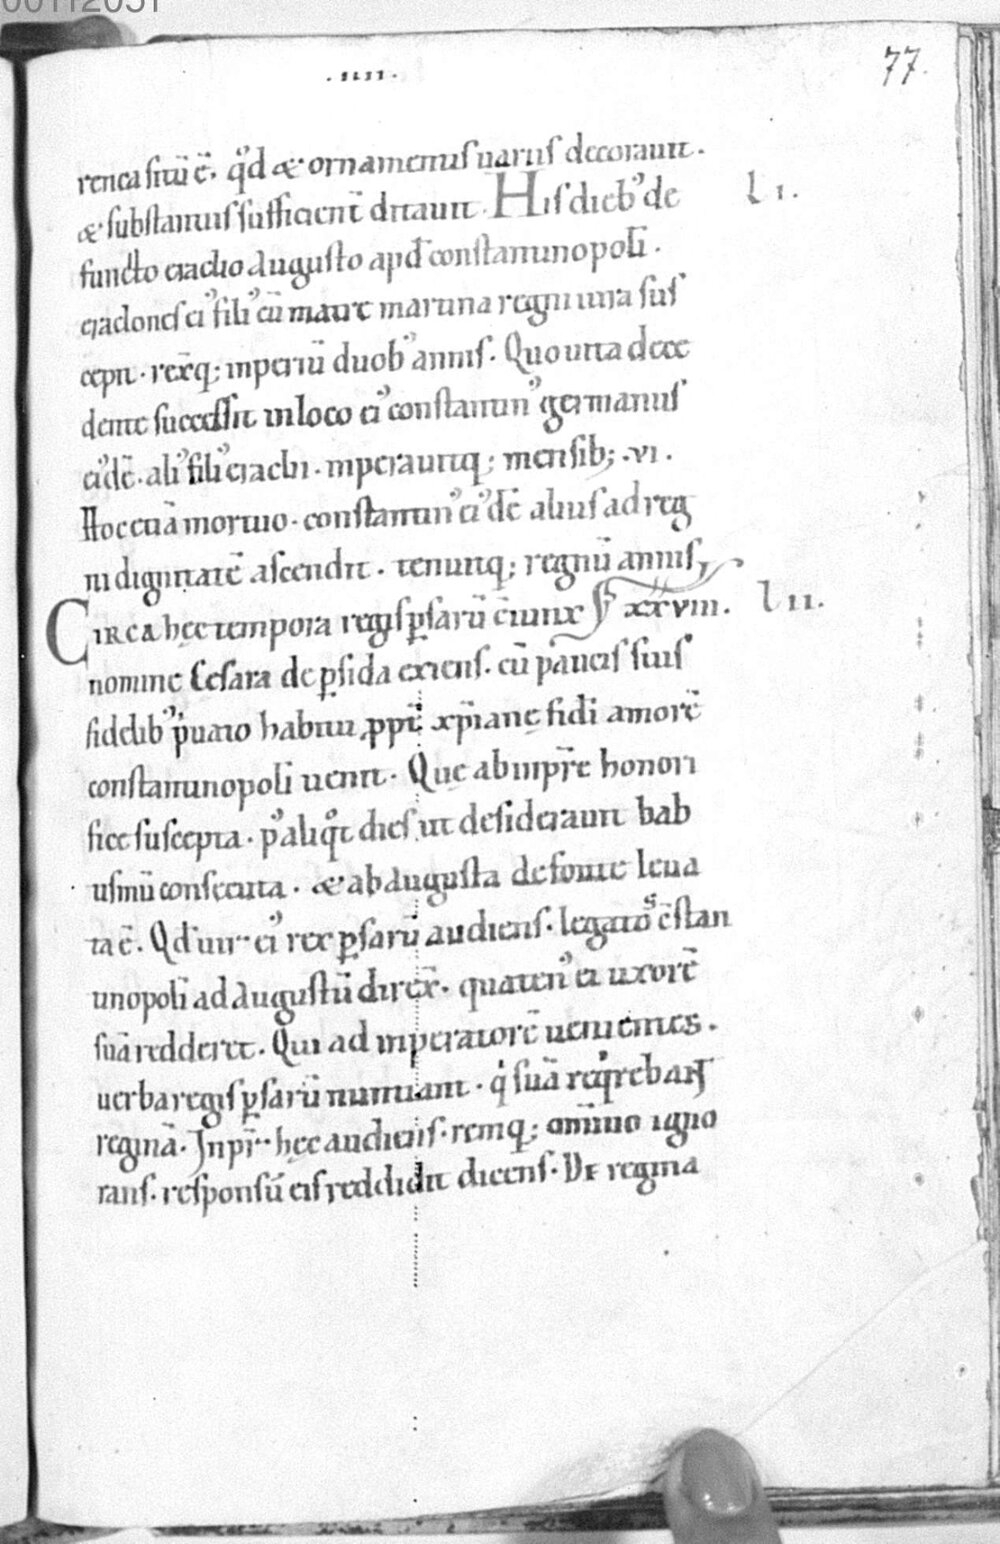 00112051
.IIII.
77.
renea sitū ē. qđ & ornamentis uariis decorauit.
& substantiis sufficient̄ ditauit. His dieb' de L I.
functo eraclio augusto apđ constantinopoli.
eraclones ei' fili' cū matre martina regni iura sus
cepit. rexq; imperiū duob' annis. Quo uita dece
dente successit in loco ei' constantin' germanus
ei'dē. ali' fili' eraclii. imperauitq; mensib; .vi.
Hoc etiā mortuo. constantin' ei'dē alius ad reg
ni dignitatē ascendit. tenuitq; regnū annis,
CIRCA hęc tempora regis ꝑsarū ɔ̄iunx xxviii. L II.
nomine Cesara de ꝑsida exiens. cū paucis suis
fidelib' p̍uato habitu ꝓpt̄ xp̄ianę fidi amorē
constantinopoli uenit. Quę ab inpr̄e honori
fice suscepta. p' aliq̊t dies ut desiderauit bab
tismū consecuta. & ab augusta de fonte leua
ta ē. Qđ uir ei' rex ꝑsarū audiens. legatos ɔ̄stan
tinopoli ad augustū direx̄. quaten' ei uxorē
suā redderet. Qui ad inperatorē uenientes.
uerba regis ꝑsarū nuntiant. q̍ suā req̍rebant
reginā. Inpr̄ hęc audiens. remq; omīno igno
rans. responsū eis reddidit dicens. De regina